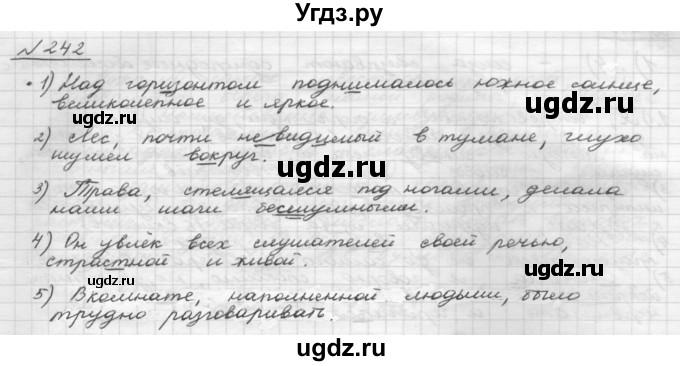 Угдз.ру
№ 242
1) Над горизонтом поднималось южное солнце,
великолепное и яркое.
2) Лес, почти невидимый в тумане, глухо
шумел вокруг.
3) Трава, стелящаяся под ногами, делала
наши шаги бесшумными.
4) Он увлёк всех слушателей своей речью,
страстной и живой.
5) В комнате, наполненной людьми, было
трудно разговаривать.
ugdz.ru
ugdz.ru
ugdz.ru
ugdz.ru
ugdz.ru
ugdz.ru
ugdz.ru
ugdz.ru